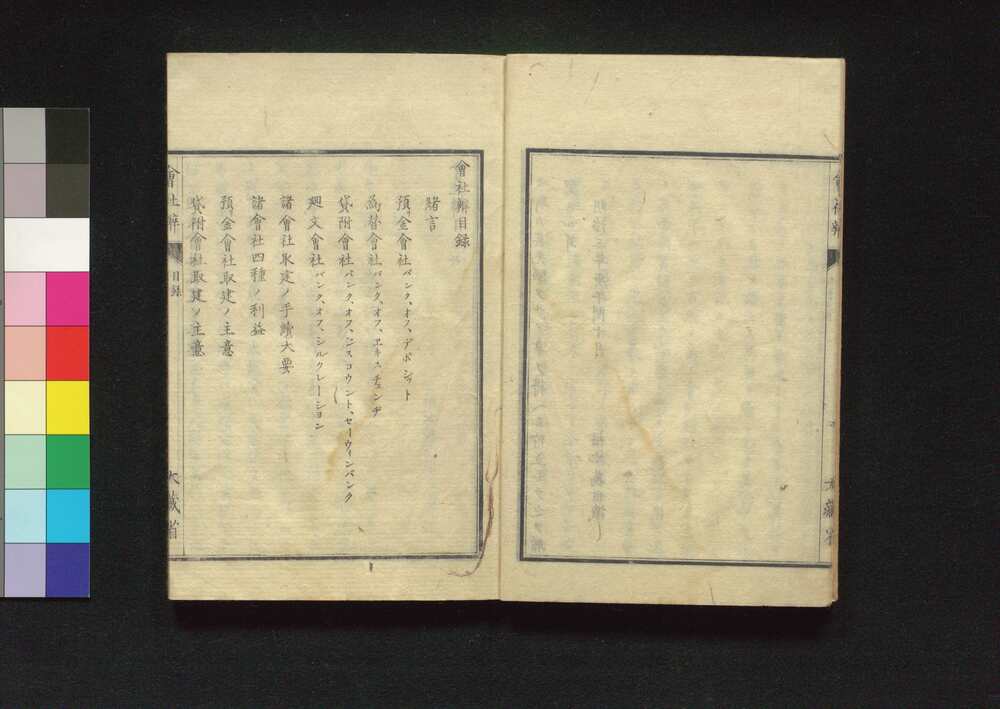 會社辨目録
緒言
預金會社バンク、オフ、デポシット
為替會社バンク、オフ、エキスチェンヂ
貸附會社バンク、オフ、ヂスコウント、セーウィンバンク
廻文會社バンク、オフ、シルクレーション
諸會社取建ノ手續大要
諸會社四種ノ利益
預金會社取建ノ主意
貸附會社取建ノ主意
會社辨
目録
大藏省